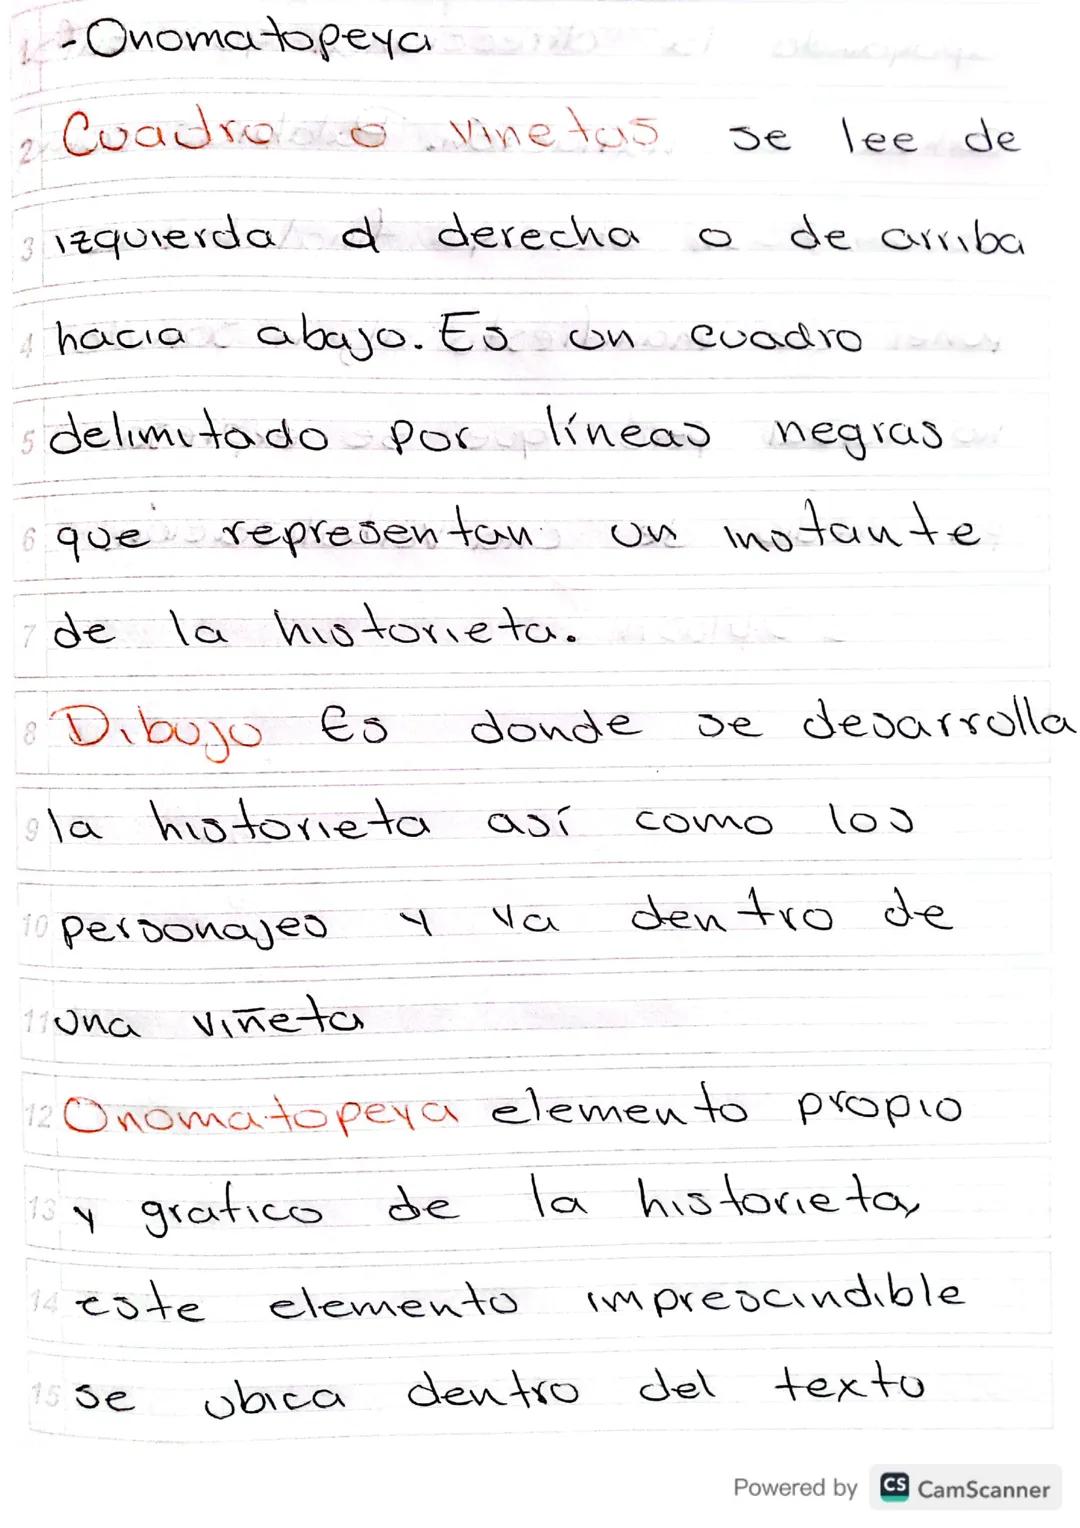 - Onomatopeya
Cuadro o vinetas se lee de
izquierda a derecha o de arriba
hacia abajo. Es un cuadro
delimitado por líneas negras
que representan un instante
de la historieta.
Dibujo Es donde se desarrolla
la historieta así como los
personajes y va dentro de
una viñeta
Onomatopeya elemento propio
y grafico de la historieta,
este elemento imprescindible
se ubica dentro del texto
Powered by CS CamScanner